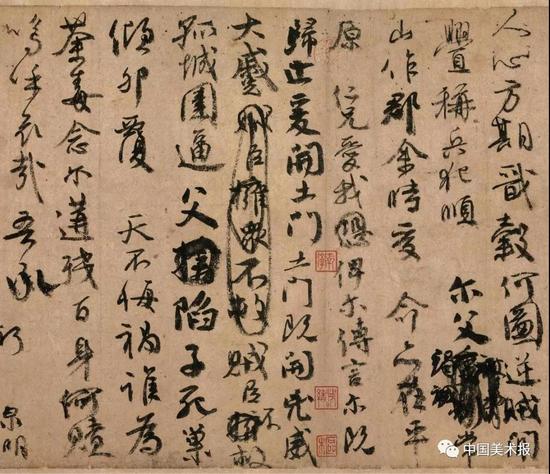 人心方期戩穀何圖逆賊閒
釁稱兵犯順 尔父竭誠常
山作郡余時受命亦在平
原 仁兄愛我俾尔傳言尔既
歸止爰開土門土門既開兇威
大蹙賊臣擁衆不救賊臣不救
孤城圍逼父陷子死巢
傾卵覆 天不悔禍誰為
荼毒念尔遘殘百身何贖
嗚呼哀哉吾承
泉明
中国美术报